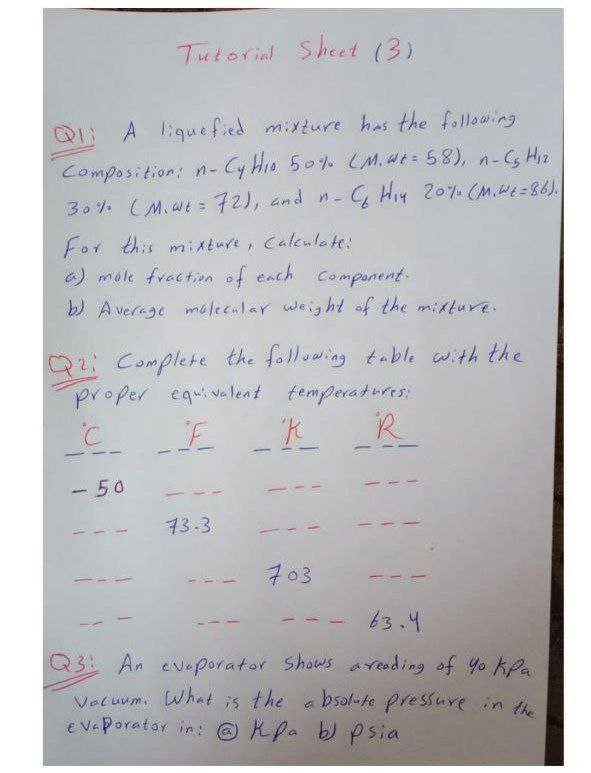 Tutorial Sheet (3)
Q1: A liquefied mixture has the following
Composition: n-C4H10 50% (M.wt=58), n-C5H12
30% (M.wt=72), and n-C6H14 20% (M.wt=86).
For this mixture, Calculate:
a) mole fraction of each Component.
b) Average molecular weight of the mixture.
Q2: Complete the following table with the
proper equivalent temperatures:
°C °F °K °R
--- --- --- ---
-50 --- --- ---
--- 73.3 --- ---
--- --- 703 ---
--- --- --- 63.4
Q3: An evaporator shows a reading of 40 KPa
Vacuum. What is the absolute pressure in the
evaporator in: ⓐ KPa b) psia